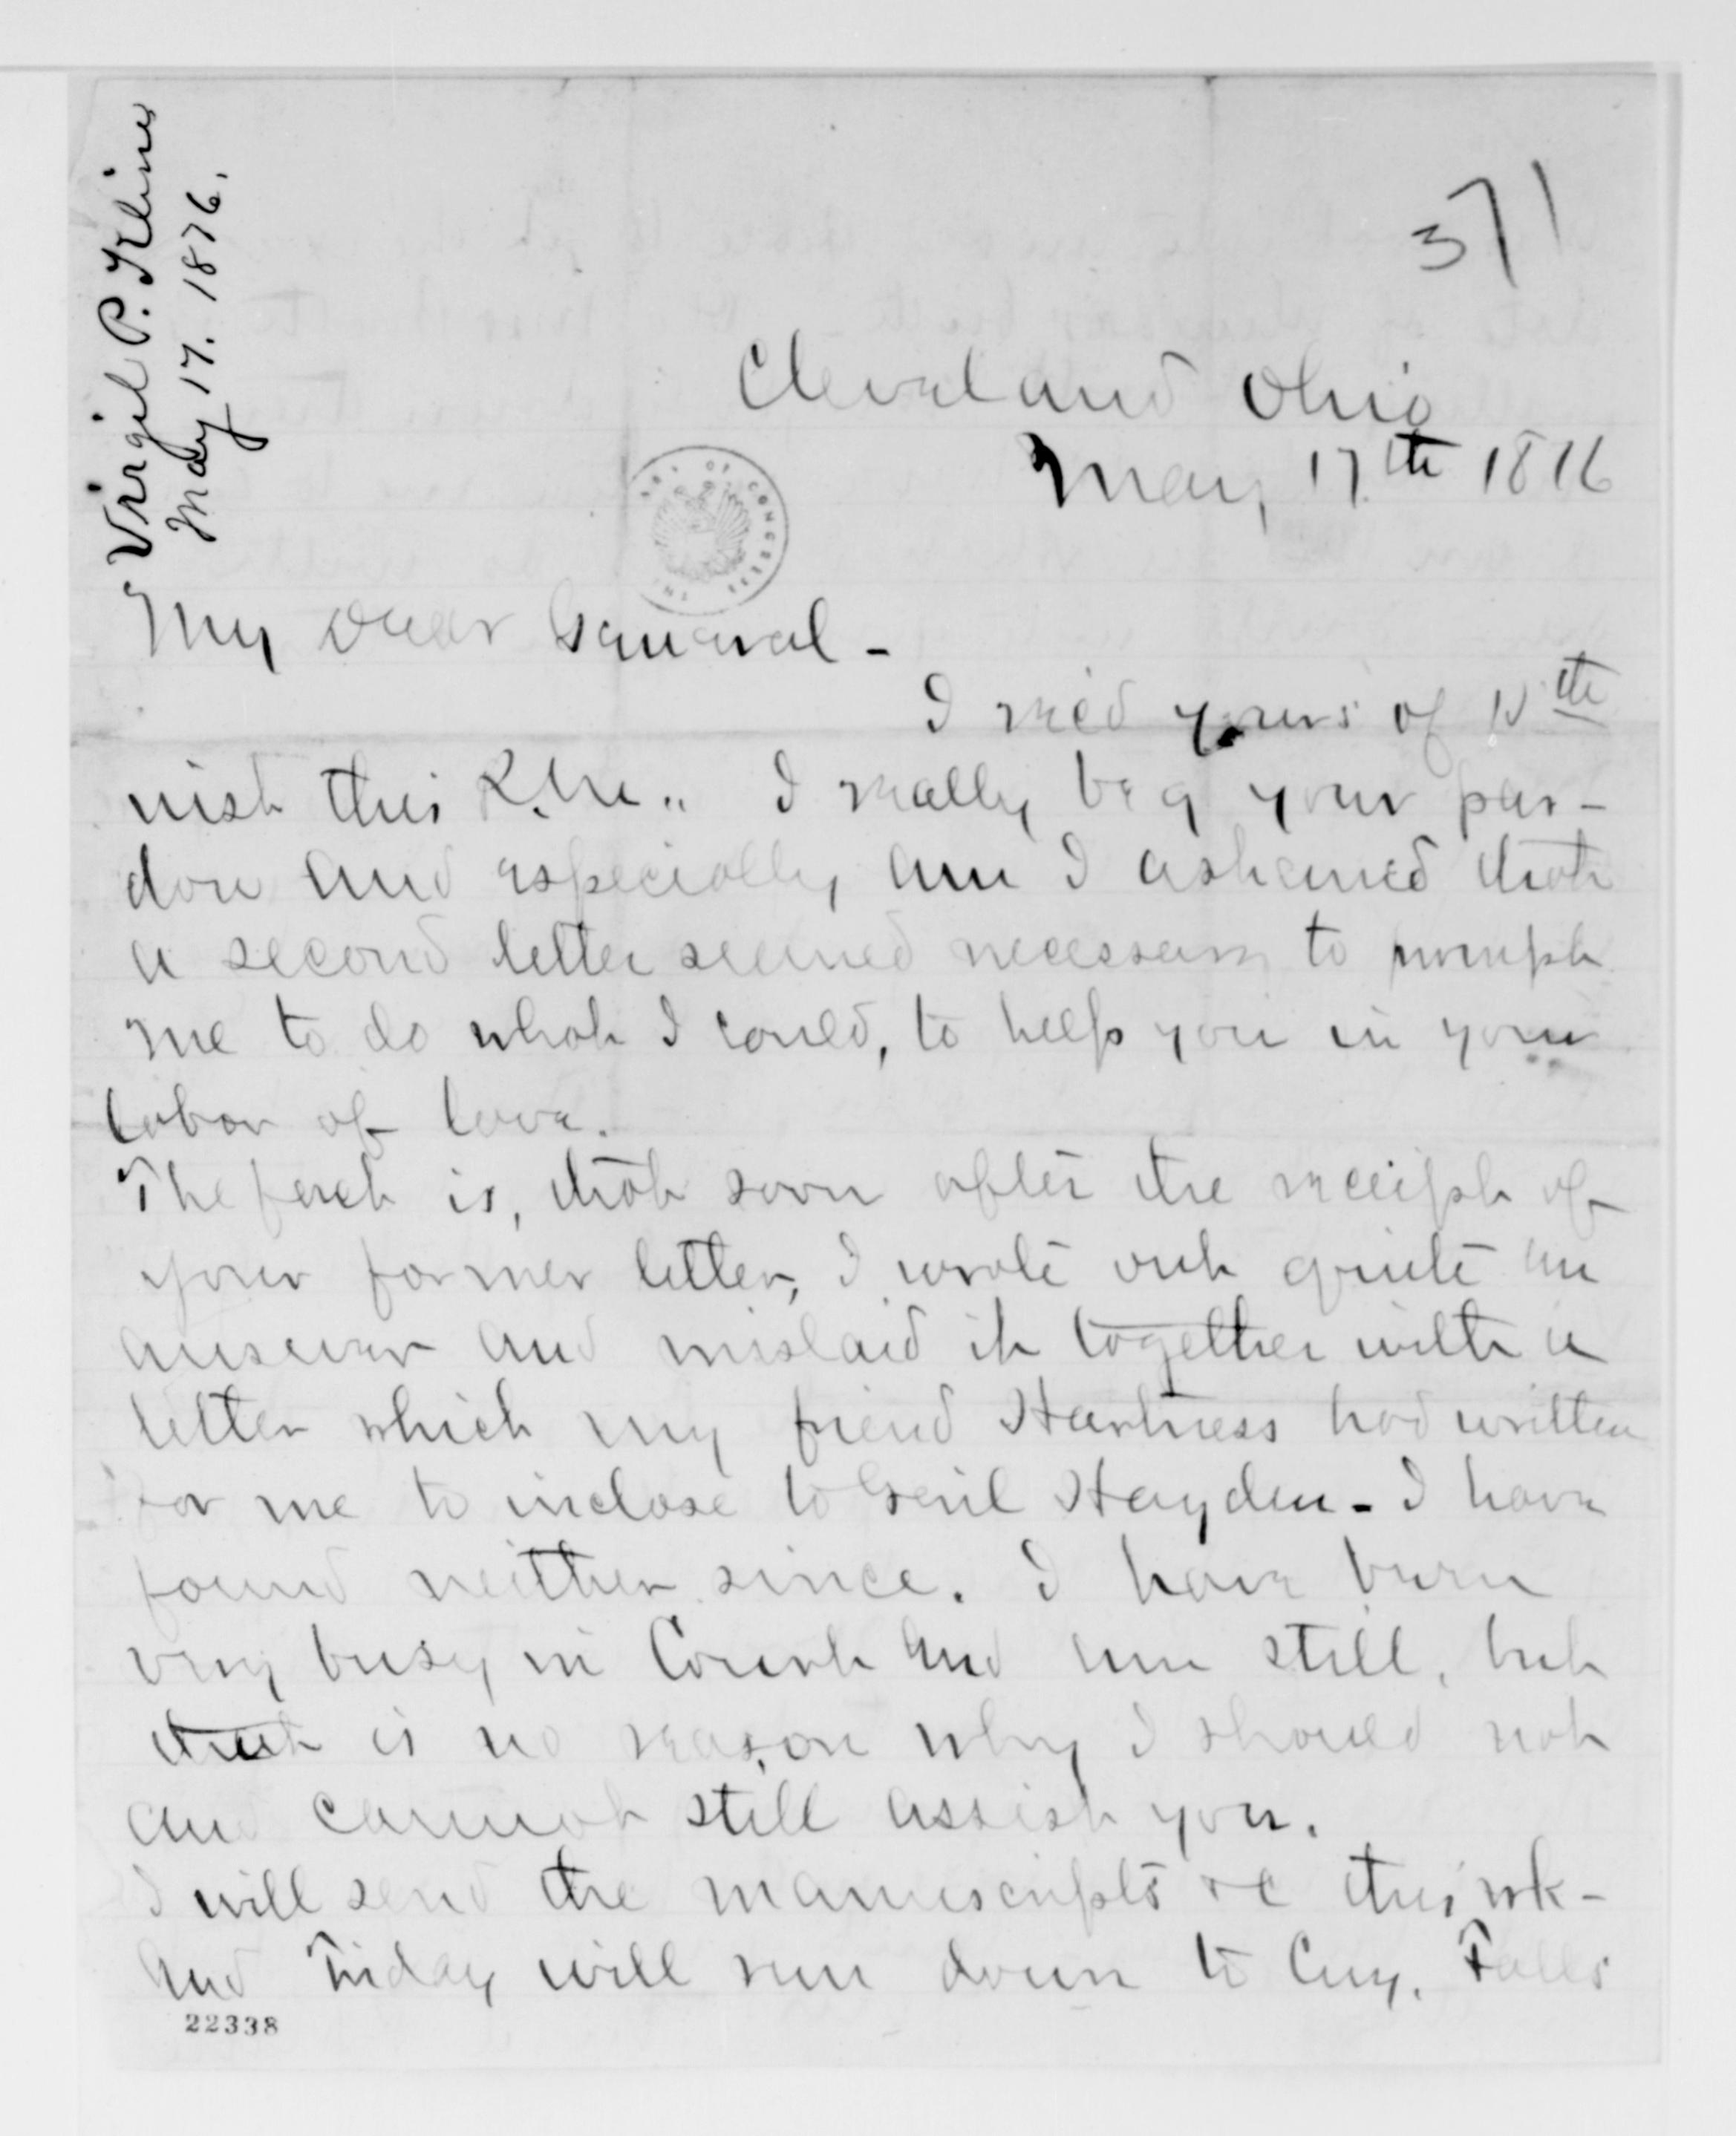 Virgil P. Kline
May 17. 1876.
371
Cleveland Ohio
May 17th 1876
My Dear General -
I rec'd yours of 15th
inst this P.M.. I really beg your par-
don and especially am I ashamed that
a second letter seemed necessary to prompt
me to do what I could, to help you in your
labor of love.
The fact is, that soon after the receipt of
your former letter, I wrote out quite an
answer and mislaid it together with a
letter which my friend Harkness had written
for me to inclose to Genl Hayden - I have
found neither since. I have been
very busy in Court and am still, but
that is no reason why I should not
and cannot still assist you.
I will send the manuscripts &c this wk -
And Friday will run down to Cuy. Falls
22338